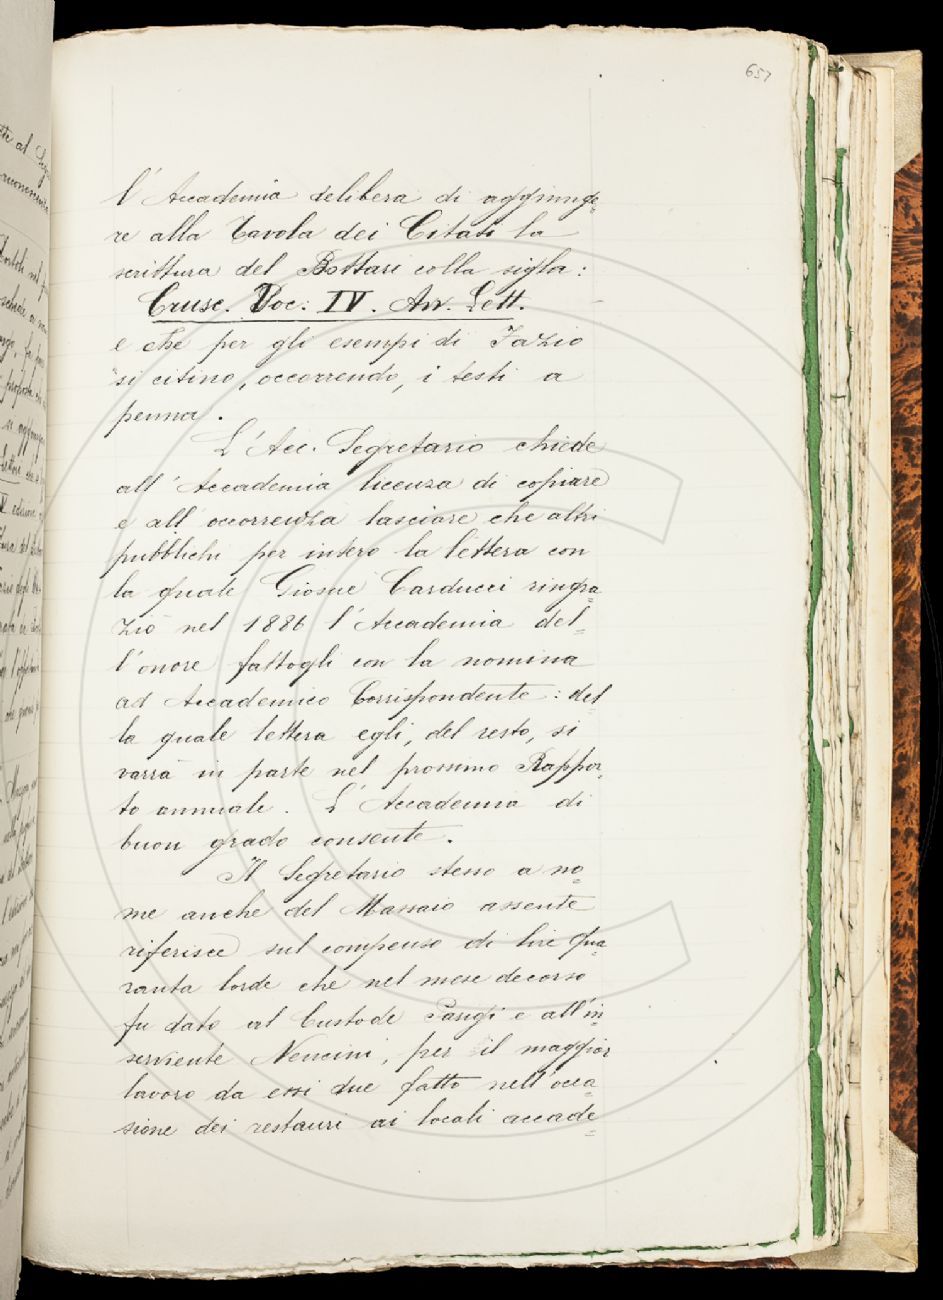 657
l'Accademia delibera di aggiunge=
re alla Tavola dei Citati la
scrittura del Bottari colla sigla:
Crusc. Voc: IV. Avv. Lett.
e che per gli esempi di Fazio
si citino, occorrendo, i testi a
penna.
L'Acc. Segretario chiede
all'Accademia licenza di copiare
e all'occorrenza lasciare che altri
pubblichi per intero la lettera con
la quale Giosue Carducci ringra=
ziò nel 1886 l'Accademia del=
l'onore fattogli con la nomina
ad Accademico Corrispondente: del
la quale lettera egli, del resto, si
varrà in parte nel prossimo Rappor=
to annuale. L'Accademia di
buon grado consente.
Il Segretario stesso a no=
me anche del Massaro assente
riferisce sul compenso di lire qua=
ranta lorde che nel mese decorso
fu dato al Custode Parigi e all'in=
serviente Nencini, per il maggior
lavoro da essi due fatto nell'occa=
sione dei restauri ai locali accade=